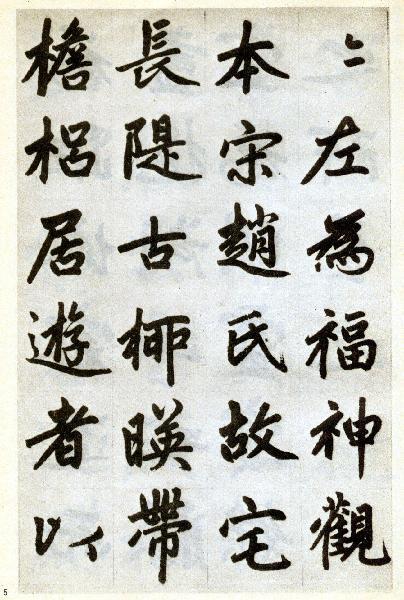 〻左為福神觀
本宋趙氏故宅
長隄古柳暎帶
檐梠居遊者以
5